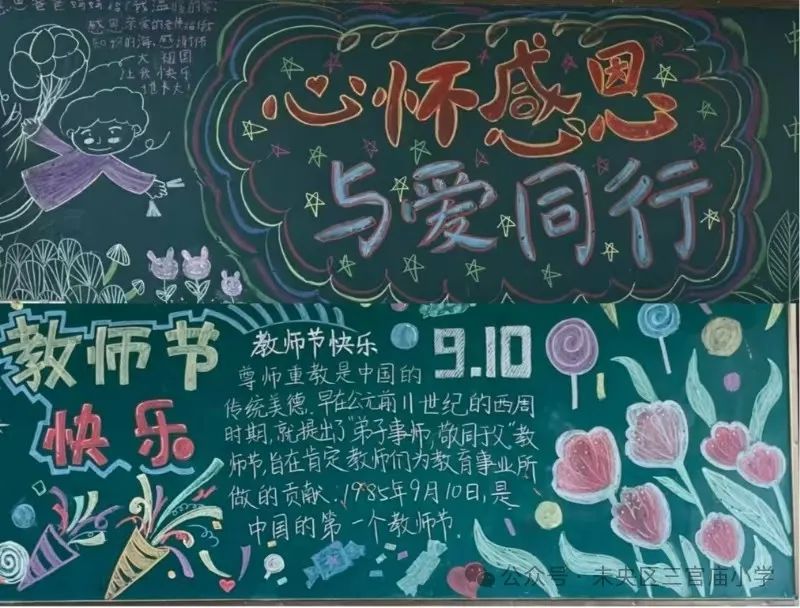 感恩亲爱的老师给我
知识的海,感谢伟
大祖国
让我快乐
心怀感恩
与爱同行
教师节
快乐
教师节快乐
9.10
尊师重教是中国的
传统美德.早在公元前11世纪的西周
时期,就提出了“弟子事师,敬同于父”教
师节,旨在肯定教师们为教育事业所
做的贡献.1985年9月10日,是
中国的第一个教师节.
公众号·未央区三官庙小学